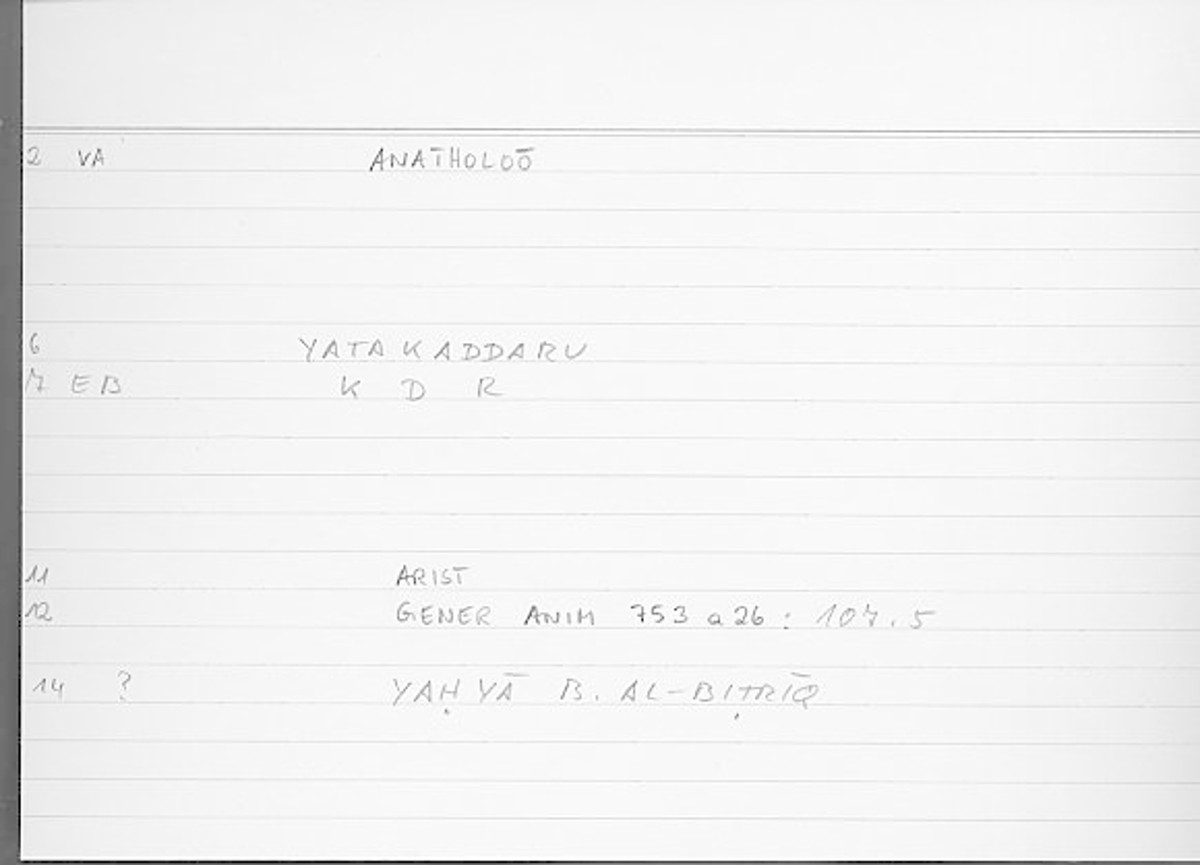 2 VA ANAT̄HOLOŌ
6 YATAKADDARU
7 EB K D R
11 ARIST
12 GENER ANIM 753 a 26 : 107.5
14 ? YAḤYĀ B. AL-BIṬRĪQ